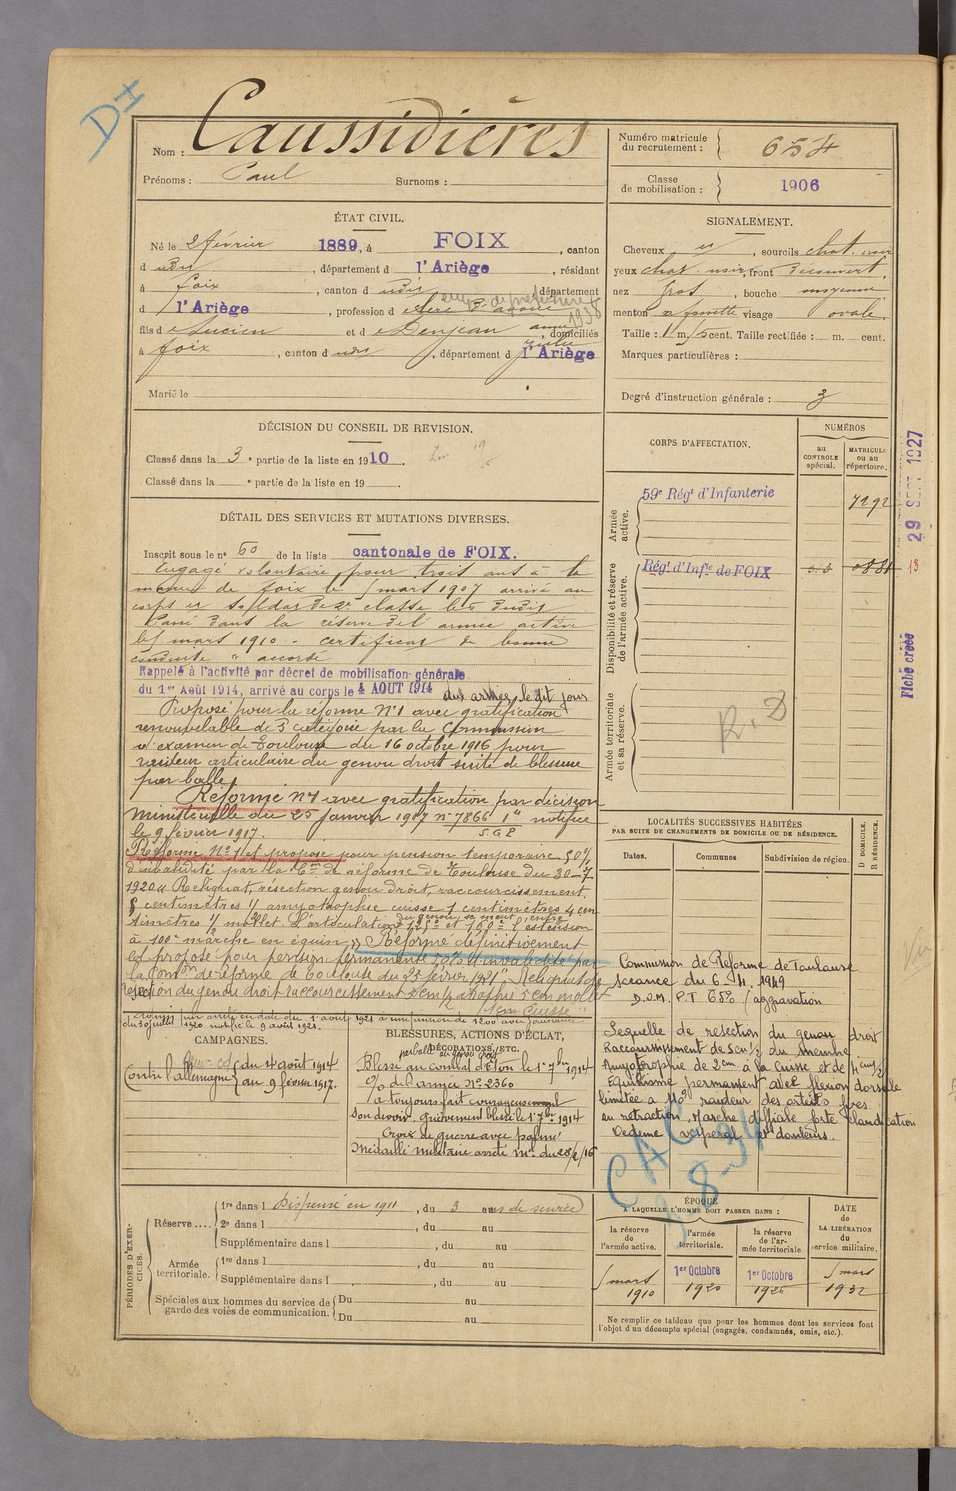 DI
Nom : Caussidières
Prénoms : Paul Surnoms :
Numéro matricule du recrutement : 654
Classe de mobilisation : 1906
ÉTAT CIVIL.
Né le 2 février 1889, à FOIX, canton
d udit, département d l'Ariège, résidant
à Foix, canton d udit département
d l'Ariège, profession d
1938
fils de Lucien et de Denjean, domiciliés
à Foix, canton d udit, département d l'Ariège
Marié le
SIGNALEMENT.
Cheveux et, sourcils chat. noir
yeux chat. noir, front découvert,
nez gros, bouche moyenne,
menton à fossette visage ovale.
Taille : 1 m. cent. Taille rectifiée : m. cent.
Marques particulières :
Degré d'instruction générale : 3
DÉCISION DU CONSEIL DE REVISION.
Classé dans la 3e partie de la liste en 1910.
Classé dans la e partie de la liste en 19
DÉTAIL DES SERVICES ET MUTATIONS DIVERSES.
Inscrit sous le n° 60 de la liste cantonale de FOIX.
Engagé volontaire pour trois ans à la
mairie de Foix le mars 1907 arrivé au
corps et soldat de 2e classe le dudit
Passé dans la réserve de l'armée active
le mars 1910 - certificat de bonne
conduite "accordé
Rappelé à l'activité par décret de mobilisation générale
du 1er Août 1914, arrivé au corps le 4 AOUT 1914 aux armées le dit jour
Proposé pour la réforme N°1 avec gratification
renouvelable de 3e catégorie par la Commission
d'examen de Toulouse du 16 octobre 1916 pour
raideur articulaire du genou droit suite de blessure
par balle
Réformé N°1 avec gratification par décision
Ministérielle du 25 janvier 1917 n° 7866 1" notifiée
le 9 février 1917. S.G.P
Réformé N°1 et proposé pour pension temporaire 50%
d'invalidité par la Con de réforme de Toulouse du 30-7
1920 "Reliquat, résection genou droit, raccourcissement
5 centimètres 1/2 amyotrophie cuisse 1 centimètres 4 cen
timètres 1/2 mollet. L'articulation du genou se meut entre
125° et 180° l'extension
à 100° marche en équin" Réformé définitivement
et proposé pour pension permanente 50% d'invalidité par
la Comon de réforme de Toulouse du 25 février 1921 "Reliquat de
résection du genou droit raccourcissement 5 cm 1/2 atrophie 5 cm mollet
1cm Cuisse"
par arrêté en date du 1 août 1921 a une pension de 1200 avec jouissance
du 30 juillet 1920 notifié le 9 août 1921.
CORPS D'AFFECTATION.
NUMÉROS
au CONTROLE spécial.
MATRICULE ou au répertoire.
Armée active.
59e Régt d'Infanterie 7292
Disponibilité et réserve de l'armée active.
Régt d'Infie de FOIX 0881 13
Armée territoriale et sa réserve.
R.D
29 SEPT 1927
Fiche créée
LOCALITÉS SUCCESSIVES HABITÉES
PAR SUITE DE CHANGEMENTS DE DOMICILE OU DE RÉSIDENCE.
Dates. Communes Subdivision de région.
D DOMICILE. R RÉSIDENCE.
Commission de Réforme de Toulouse
séance du 6-4.1949
D.O.M. P.T 65% (aggravation
Sequelle de resection du genou droit
Raccourcissement de 5 cm 1/2 du membre
Amyotrophie de 2cm à la cuisse et de 4 cm 1/2
Equinisme permanent avec flexion dorsale
limitée à 110° raideur des orteils fixes
en rétraction, Marche difficile forte claudication
Oedeme vesperal et douleurs.
CAMPAGNES.
Contre l'Allemagne du 4 août 1914
au 9 février 1917.
BLESSURES, ACTIONS D'ÉCLAT, DÉCORATIONS, ETC.
par balle au genou droit
Blessé au combat d'Eton le 1er 7bre 1914
O/o de l'armée N° 2360
"a toujours fait courageusement
son devoir. Grièvement blessé le 1er 7bre 1914
Croix de guerre avec palme
Médaille Militaire arrêté Mel du 28/2/16
PÉRIODES D'EXERCICES.
Réserve ....
1re dans l Dispensé en 1911, du 3 ans de service
2e dans l , du au
Supplémentaire dans l , du au
Armée territoriale.
1re dans l , du au
Supplémentaire dans l , du au
Spéciales aux hommes du service de garde des voies de communication.
Du au
Du au
ÉPOQUE
A LAQUELLE L'HOMME DOIT PASSER DANS :
la réserve de l'armée active.
l'armée territoriale.
la réserve de l'armée territoriale.
DATE de LA LIBÉRATION du service militaire.
mars 1910
1er Octobre 1920
1er Octobre 1926
mars 1932
Ne remplir ce tableau que pour les hommes dont les services font
l'objet d'un décompte spécial (engagés, condamnés, omis, etc.).